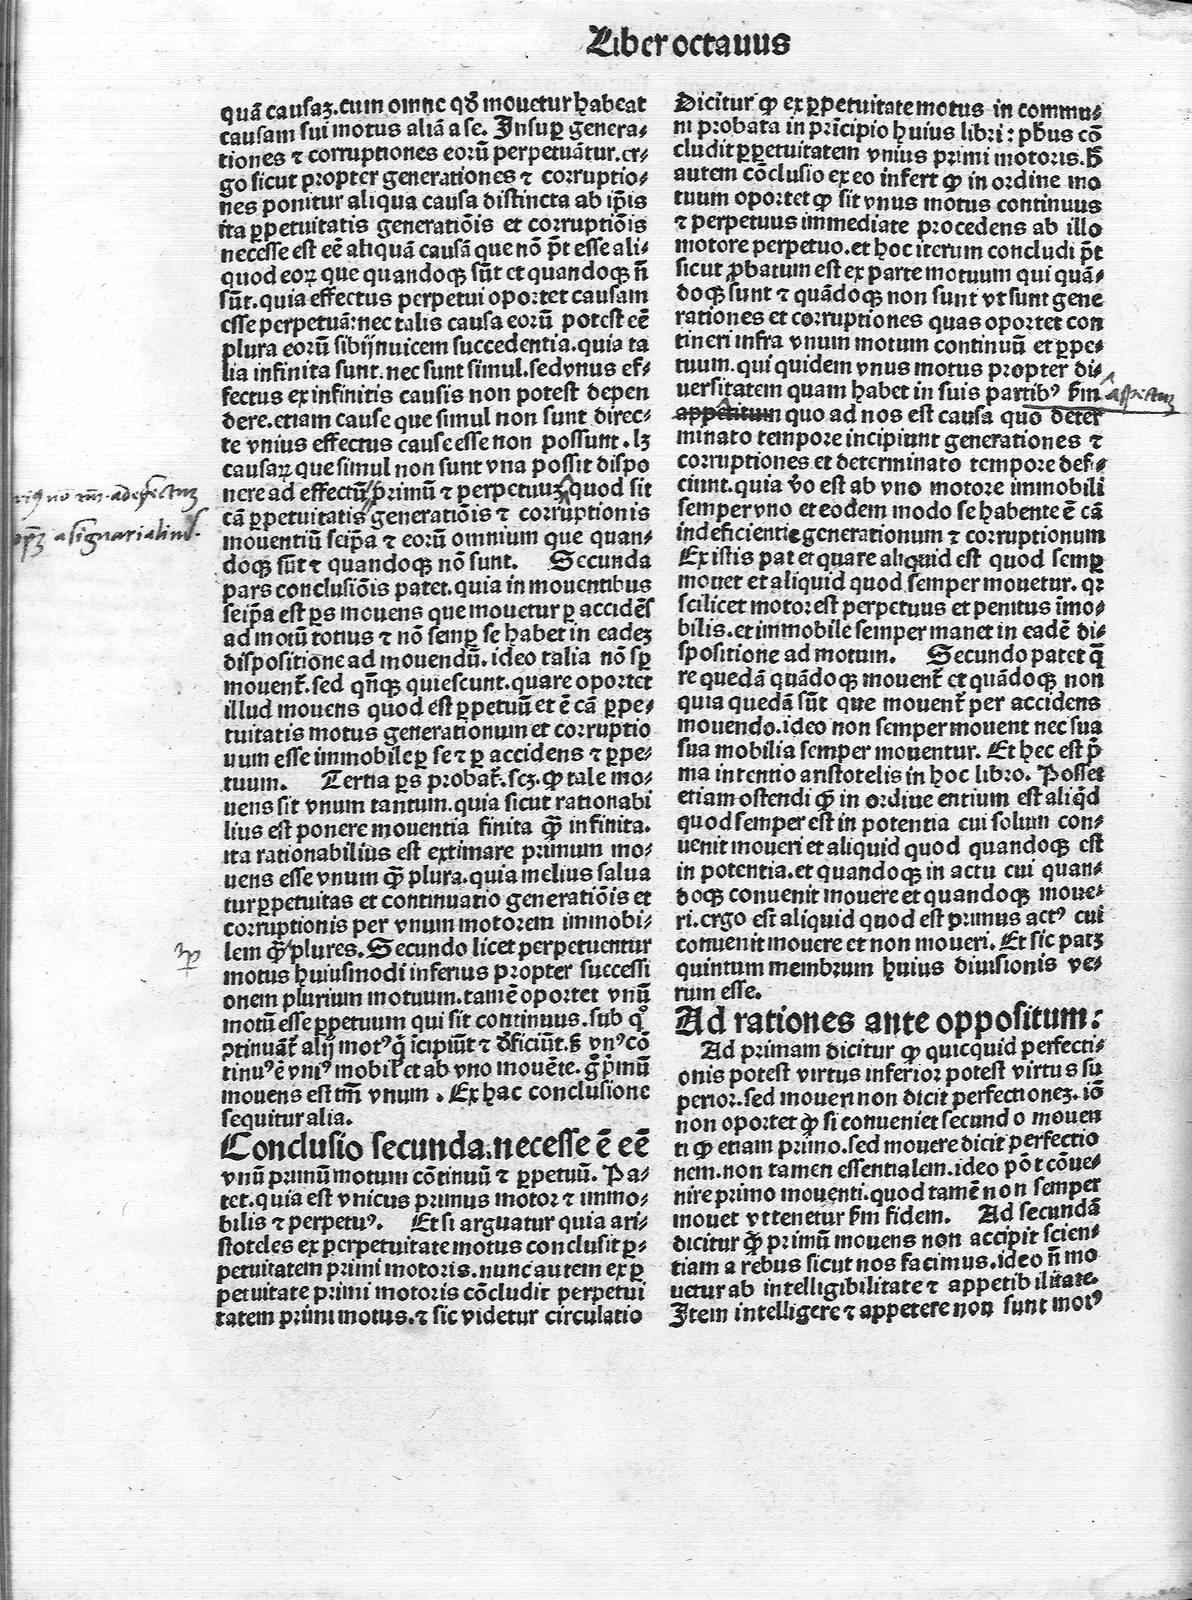 Liber octauus
quā causaꝫ. cum omne qđ mouetur habeat
causam sui motus aliā a se. Insuꝑ genera⸗
tiones ⁊ corruptiones eorū perpetuātur. er⸗
go sicut propter generationes ⁊ corruptio⸗
nes ponitur aliqua causa distincta ab ip̄is
ita ꝑpetuitatis generatiōis et corruptiōis
necesse est eē aliquā causā que nō p̄t esse ali⸗
quod eoꝝ que quandoqꝫ sūt et quandoqꝫ n̄
sūt. quia effectus perpetui oportet causam
esse perpetuā: nec talis causa eorū potest eē
plura eorū sibijnuicem succedentia. quia ta
lia infinita sunt. nec sunt simul. sed vnus ef⸗
fectus ex infinitis causis non potest depen
dere. etiam cause que simul non sunt direc⸗
te vnius effectus cause esse non possunt. lꝫ
causaꝝ que simul non sunt vna possit dispo
nere ad effectū primū ⁊ perpetuuꝫ quod sit
cā ꝑpetuitatis generatiōis ⁊ corruptionis
mouentiū seip̄a ⁊ eorū omnium que quan⸗
doqꝫ sūt ⁊ quandoqꝫ nō sunt. Secunda
pars conclusiōis patet. quia in mouentibus
seip̄a est ꝑs mouens que mouetur ꝑ accidēs
ad motū totius ⁊ nō semꝑ se habet in eadeꝫ
dispositione ad mouendū. ideo talia nō sꝑ
mouent̄. sed qn̄qꝫ quiescunt. quare oportet
illud mouens quod est ꝑpetuū et ē cā ꝑpe⸗
tuitatis motus generationum et corruptio
num esse immobile ꝑ se ⁊ ꝑ accidens ⁊ ꝑpe⸗
tuum. Tertia ꝑs probat̄. scꝫ. ꝙ tale mo⸗
uens sit vnum tantum. quia sicut rationabi
lius est ponere mouentia finita ꝙ̄ infinita.
ita rationabilius est extimare primum mo⸗
uens esse vnum ꝙ̄ plura. quia melius salua
tur ꝑpetuitas et continuatio generatiōis et
corruptionis per vnum motorem immobi⸗
lem ꝙ̄ plures. Secundo licet perpetuentur
motus huiusmodi inferius propter successi
onem plurium motuum. tamē oportet vnū
motū esse ꝑpetuum qui sit continuus. sub qͦ
ↄtinuāt̄ alij motꝰ q̇ īcipiūt ⁊ deficiūt. sꝫ vnꝰ cō
tinuꝰ ē vniꝰ mobil̓ et ab vno mouēte. g̊ p̄mū
mouens est tm̄ vnum. Ex hac conclusione
sequitur alia.
Conclusio secunda. necesse ē eē
vnū primū motum cōtinuū ⁊ ꝑpetuū. Pa⸗
tet. quia est vnicus primus motor ⁊ immo⸗
bilis ⁊ perpetuꝰ. Et si arguatur quia ari⸗
stoteles ex perpetuitate motus conclusit ꝑ⸗
petuitatem primi motoris. nunc autem ex ꝑ
petuitate primi motoris cōcludit perpetui
tatem primi motus. ⁊ sic videtur circulatio
Dicitur ꝙ ex ꝑpetuitate motus in commu⸗
ni probata in prīcipio huius libri: phūs cō
cludit ꝑpetuitatem vnius primi motoris. h̄
autem cōclusio ex eo infert ꝙ in ordine mo
tuum oportet ꝙ sit vnus motus continuus
⁊ perpetuus immediate procedens ab illo
motore perpetuo. et hoc iterum concludi p̄t
sicut ꝓbatum est ex parte motuum qui quā⸗
doqꝫ sunt ⁊ quādoqꝫ non sunt vt sunt gene
rationes et corruptiones quas oportet con
tineri infra vnum motum continuū et ꝑpe⸗
tuum. qui quidem vnus motus propter di⸗
uersitatem quam habet in suis partibꝰ s̄m aspectuꝫ
appetitum quo ad nos est causa quo deter
minato tempore incipiunt generationes ⁊
corruptiones et determinato tempore defi⸗
ciunt. quia v̄o est ab vno motore immobili
semper vno et eodem modo se habente ē cā
indeficientie generationum ⁊ corruptionum
Ex istis pat̄ et quare aliquid est quod semꝑ
mouet et aliquid quod semper mouetur. qꝛ
scilicet motor est perpetuus et penitus īmo⸗
bilis. et immobile semper manet in eadē di⸗
spositione ad motum. Secundo patet q̄
re quedā quādoqꝫ mouent̄ et quādoqꝫ non
quia quedā sūt que mouent̄ per accidens
mouendo. ideo non semper mouent nec sua
sua mobilia semper mouentur. Et hec est p̄
ma intentio aristotelis in hoc libro. Posset
etiam ostendi ꝙ in ordine entium est aliq̇d
quod semper est in potentia cui solum con⸗
uenit moueri et aliquid quod quandoqꝫ est
in potentia. et quandoqꝫ in actu cui quan⸗
doqꝫ conuenit mouere et quandoqꝫ moue⸗
ri. ergo est aliquid quod est primus actꝰ cui
conuenit mouere et non moueri. Et sic patꝫ
quintum membrum huius diuisionis ve⸗
rum esse.
Ad rationes ante oppositum:
Ad primam dicitur ꝙ quicquid perfecti⸗
onis potest virtus inferior potest virtus su
perior. sed moueri non dicit perfectioneꝫ. iō
non oportet ꝙ si conueniet secundo mouen
ti ꝙ etiam primo. sed mouere dicit perfectio
nem. non tamen essentialem. ideo pōt cōue⸗
nire primo mouenti. quod tamē non semper
mouet vt tenetur s̄m fidem. Ad secundā
dicitur ꝙ primū mouens non accipit scien⸗
tiam a rebus sicut nos facimus. ideo n̄ mo
uetur ab intelligibilitate ⁊ appetibilitate.
Item intelligere ⁊ appetere non sunt motꝰ